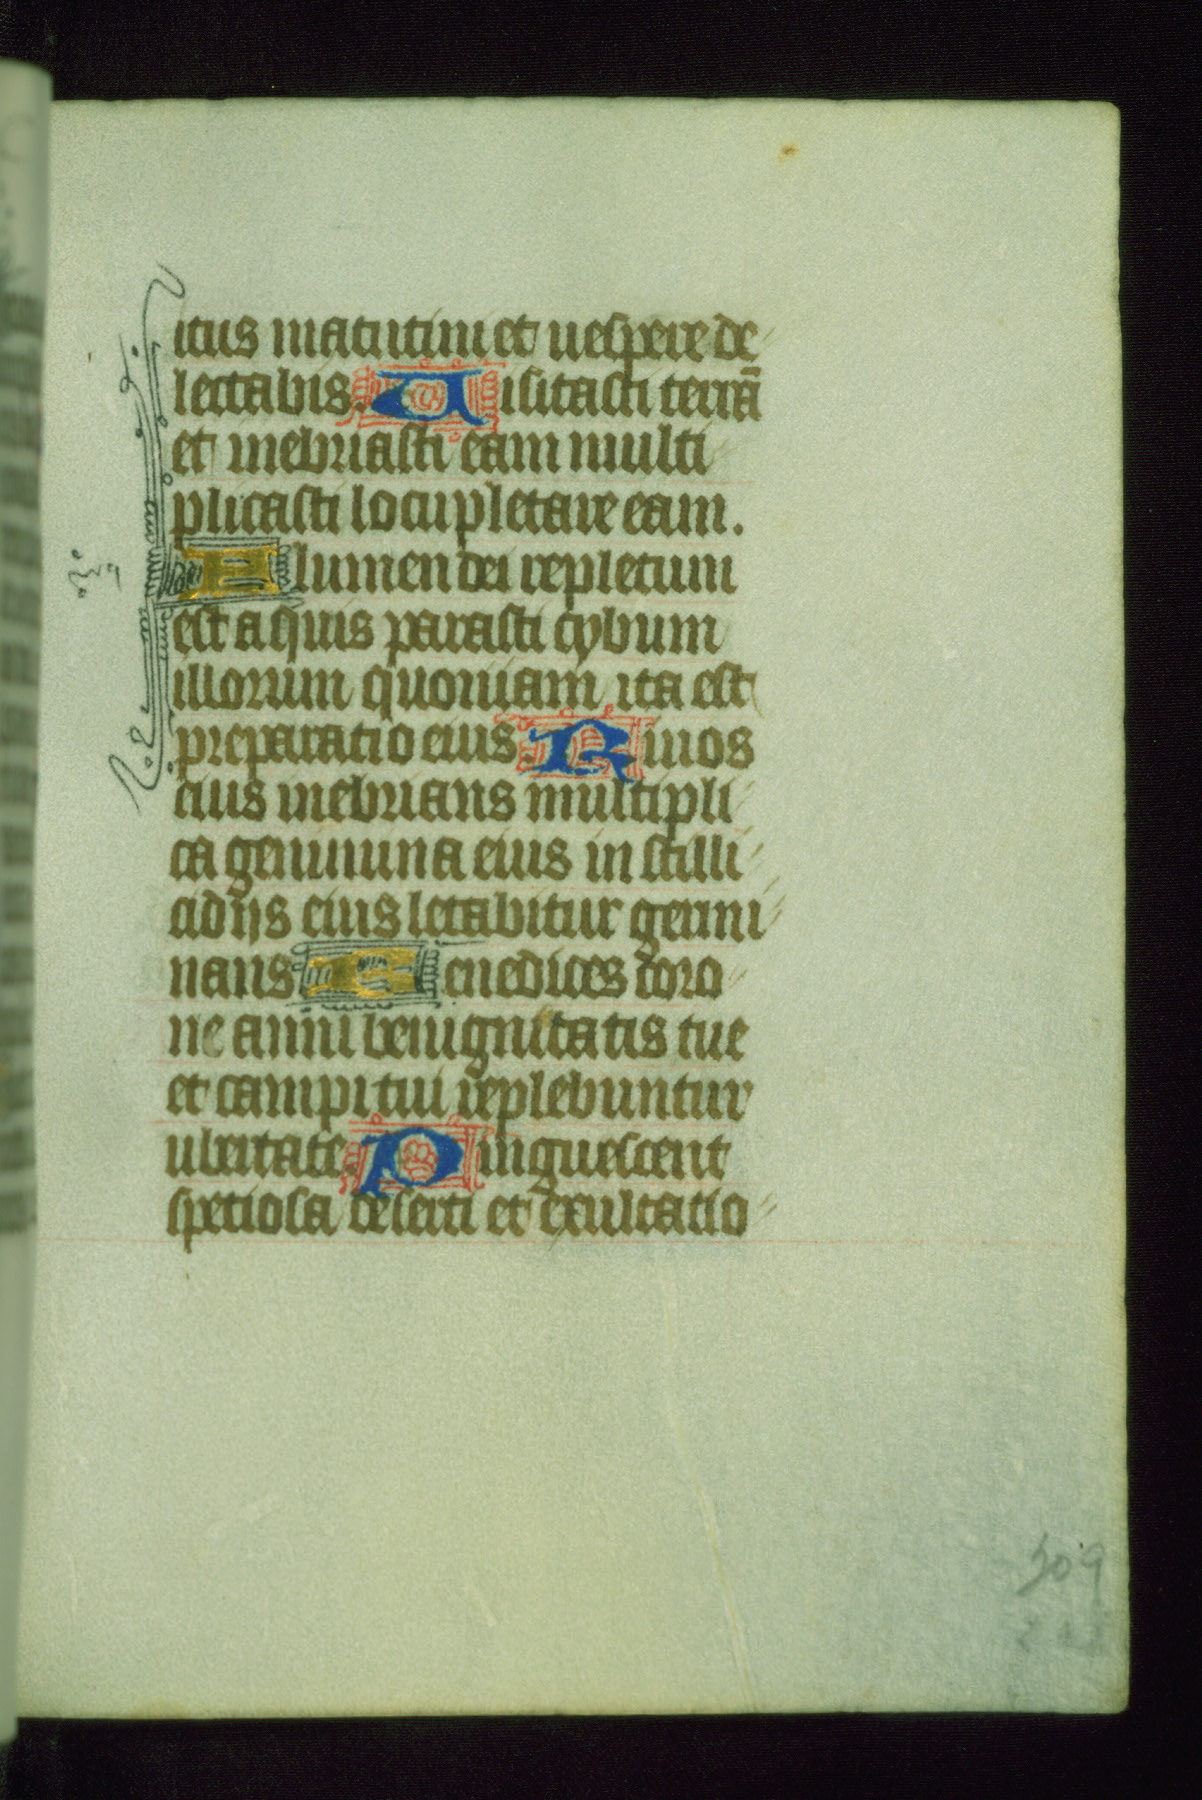 itus matutini et uespere de
lectabis. Uisitasti terrã
et inebriasti eam multi
plicasti locupletare eam.
Flumen dei repletum
est aquis parasti cybum
illorum quoniam ita est
preparatio eius. Riuos
eius inebrians multipli
ca genimina eius in stilli
cidijs eius letabitur germi
nans Benedices coro
ne anni benignitatis tue
et campi tui replebuntur
ubertate. Pinguescent
spetiosa deserti et exultatio
309